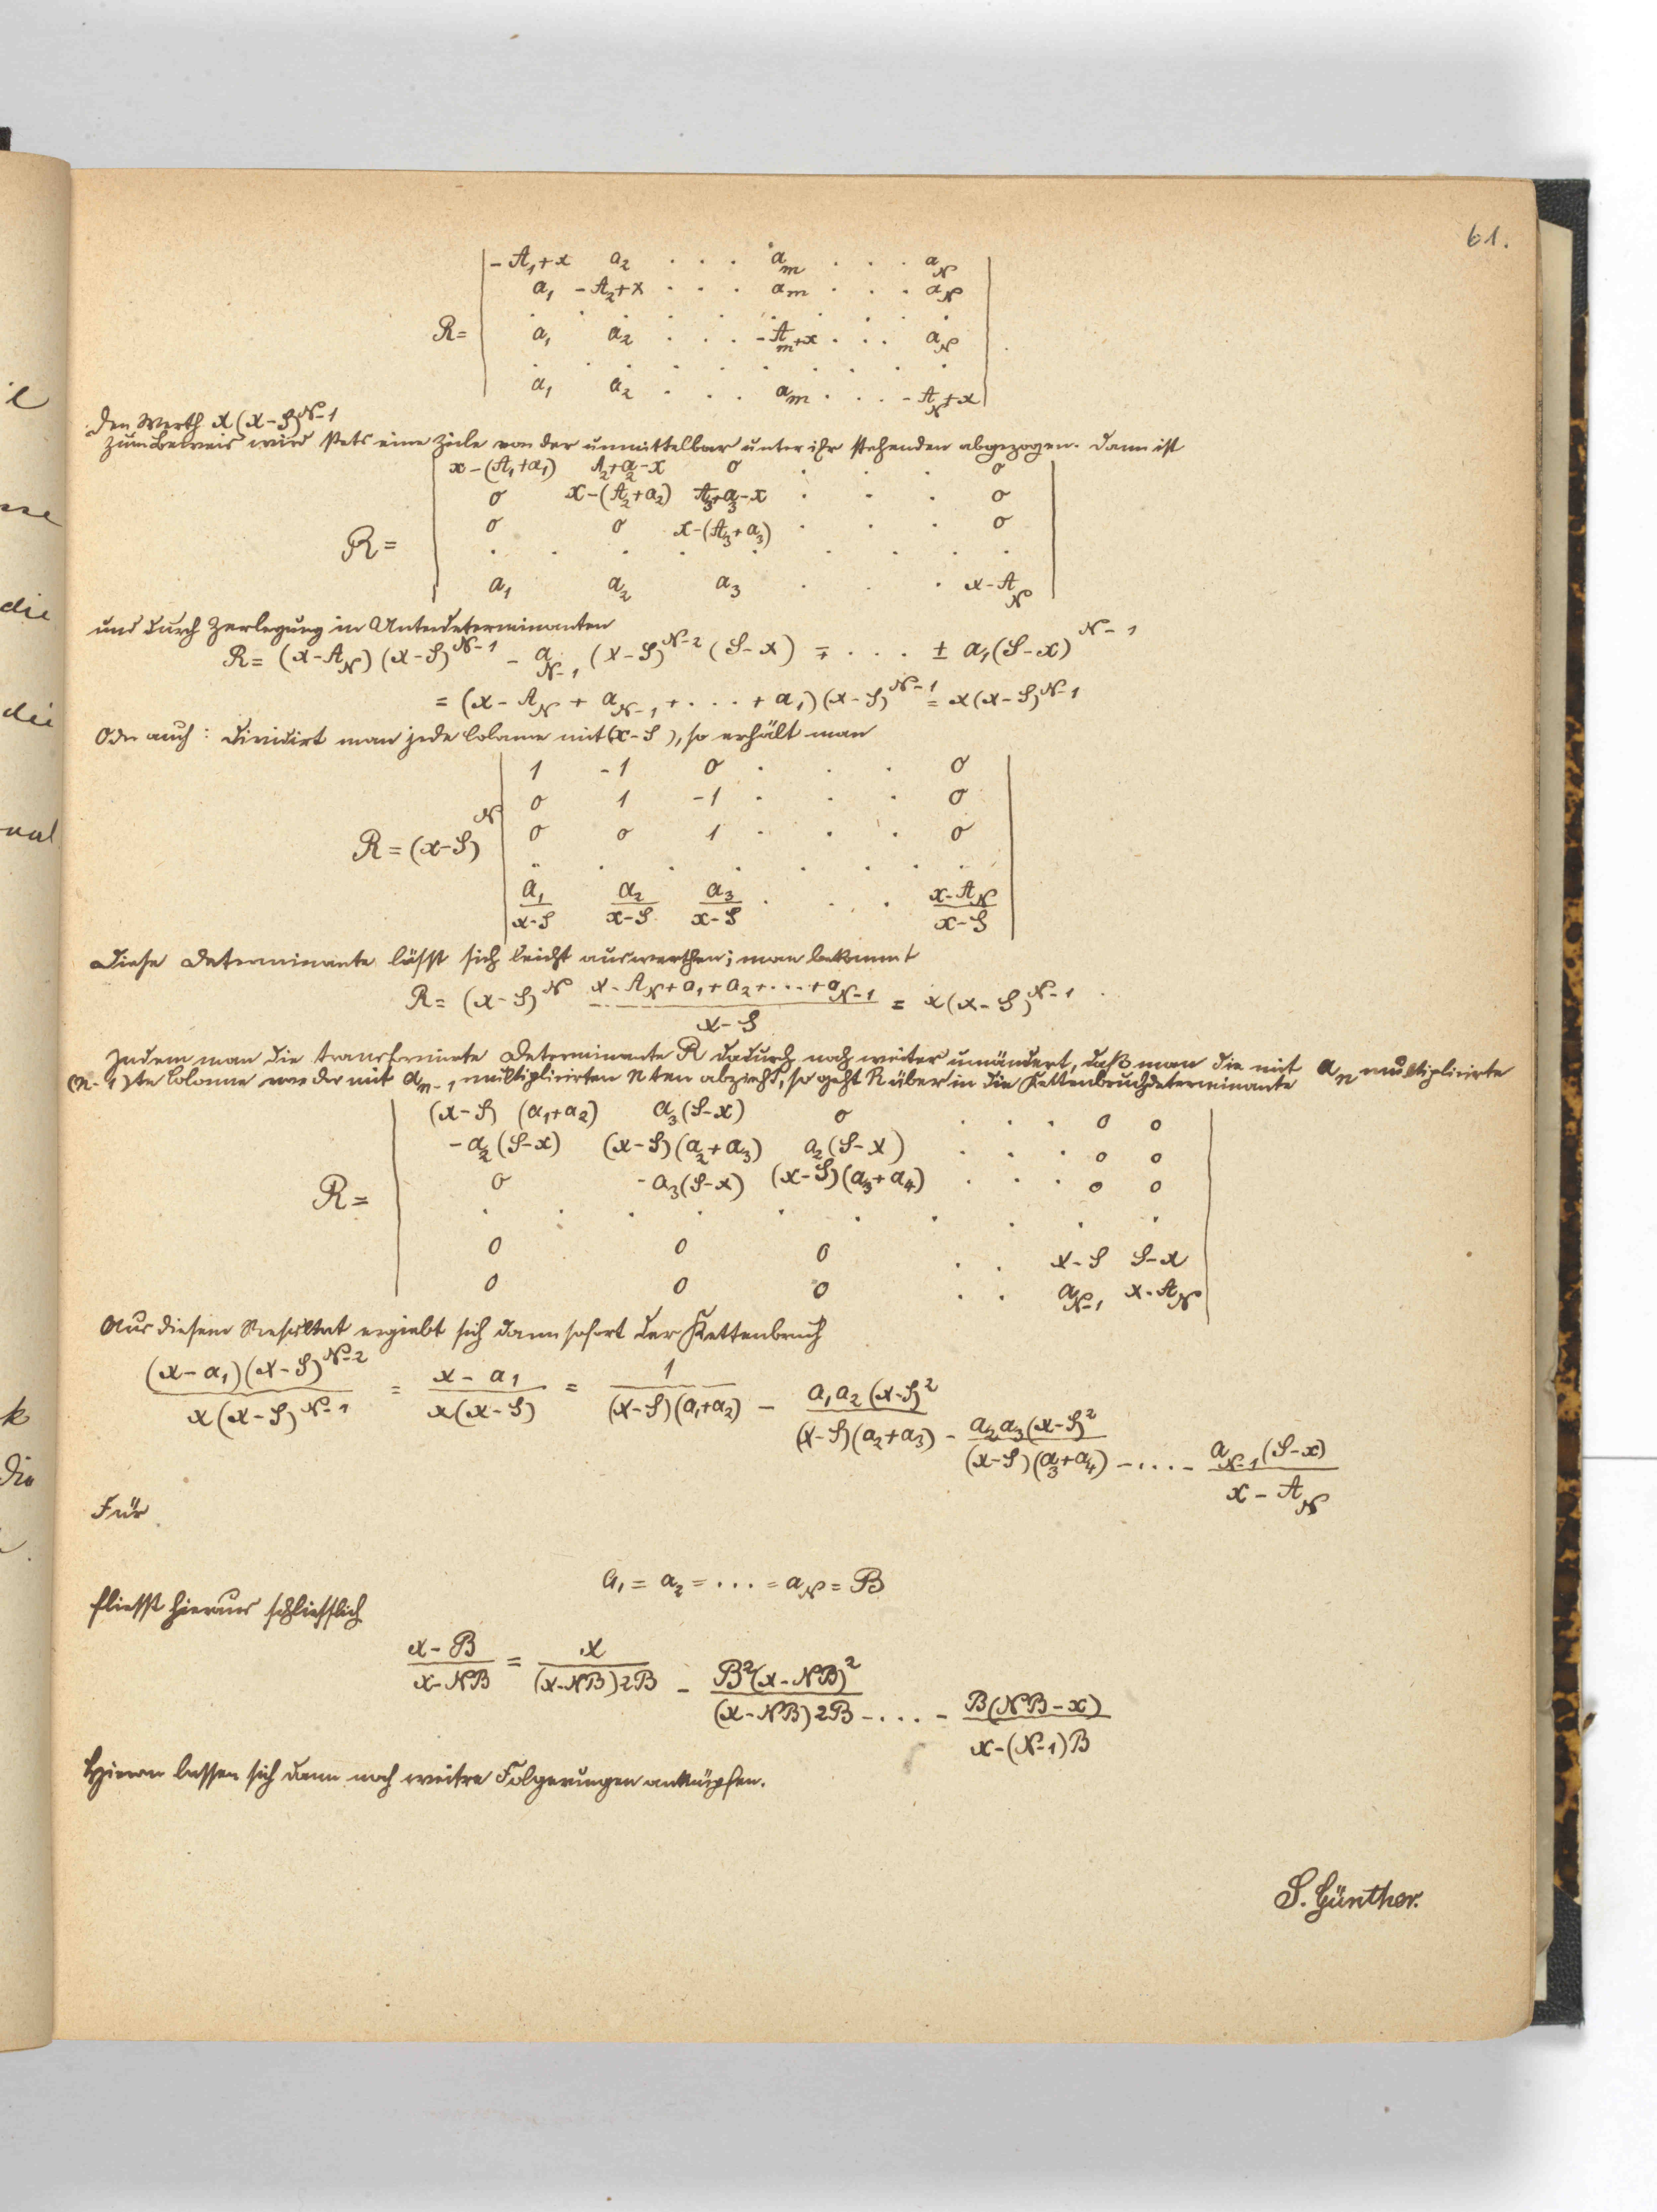 61.
-A₁+x a₂ . . . aₘ . . . a_N
a₁ -A₂+x . . . aₘ . . . a_N
. . . . . . . . . .
R= a₁ a₂ . . . -Aₘ+x . . . a_N
. . . . . . . . . .
a₁ a₂ . . . aₘ . . . -A_N+x
den Werth x(x-S)^{N-1}
Zum Beweis wird stets eine Zeile von der unmittelbar unter ihr stehenden abgezogen. Dann ist
x-(A₁+a₁) A₂+a₂-x 0 . . . 0
0 x-(A₂+a₂) A₃+a₃-x . . . 0
0 0 x-(A₃+a₃) . . . 0
R=
. . . . . . . . .
a₁ a₂ a₃ . . . x-A_N
und durch Zerlegung in Unterdeterminanten
R= (x-A_N)(x-S)^{N-1} - a_{N-1}(x-S)^{N-2}(S-x) ∓ . . . ± a₁(S-x)^{N-1}
= (x-A_N + a_{N-1} + . . . + a₁)(x-S)^{N-1} = x(x-S)^{N-1}
Oder auch: dividirt man jede Colonne mit (x-S), so erhält man
1 -1 0 . . . 0
0 1 -1 . . . 0
R=(x-S)^N 0 0 1 . . . 0
. . . . . . . .
a₁/(x-S) a₂/(x-S) a₃/(x-S) . . . (x-A_N)/(x-S)
Diese Determinante lässt sich leicht auswerthen; man bekommt
R= (x-S)^N (x-A_N+a₁+a₂+...+a_{N-1})/(x-S) = x(x-S)^{N-1}
Indem man die transformirte Determinante R dadurch noch weiter umändert, daß man die mit aₙ multiplicirte
(n-1)te Colonne von der mit aₙ₋₁ multiplicirten nten abzieht, so geht R über in die Kettenbruchdeterminante
(x-S) (a₁+a₂) a₃(S-x) 0 . . . 0 0
-a₂(S-x) (x-S)(a₂+a₃) a₂(S-x) . . . 0 0
R= 0 -a₃(S-x) (x-S)(a₃+a₄) . . . 0 0
. . . . . . . . . .
0 0 0 . . x-S S-x
0 0 0 . . a_{N-1} x-A_N
Aus diesem Resultat ergiebt sich dann sofort der Kettenbruch
(x-a₁)(x-S)^{N-2}/x(x-S)^{N-1} = (x-a₁)/x(x-S) = 1/(x-S)(a₁+a₂) - a₁a₂(x-S)²/(x-S)(a₂+a₃) - a₂a₃(x-S)²/(x-S)(a₃+a₄) - .... - a_{N-1}(S-x)/(x-A_N)
Für
a₁ = a₂ = ... = a_N = B
fliesst hieraus schliesslich
(x-B)/(x-NB) = x/(x-NB)2B - B²(x-NB)²/(x-NB)2B - .... - B(NB-x)/(x-(N-1)B)
Hieran lassen sich dann noch weitre Folgerungen anknüpfen.
S. Günther.
il
die
die
k
die